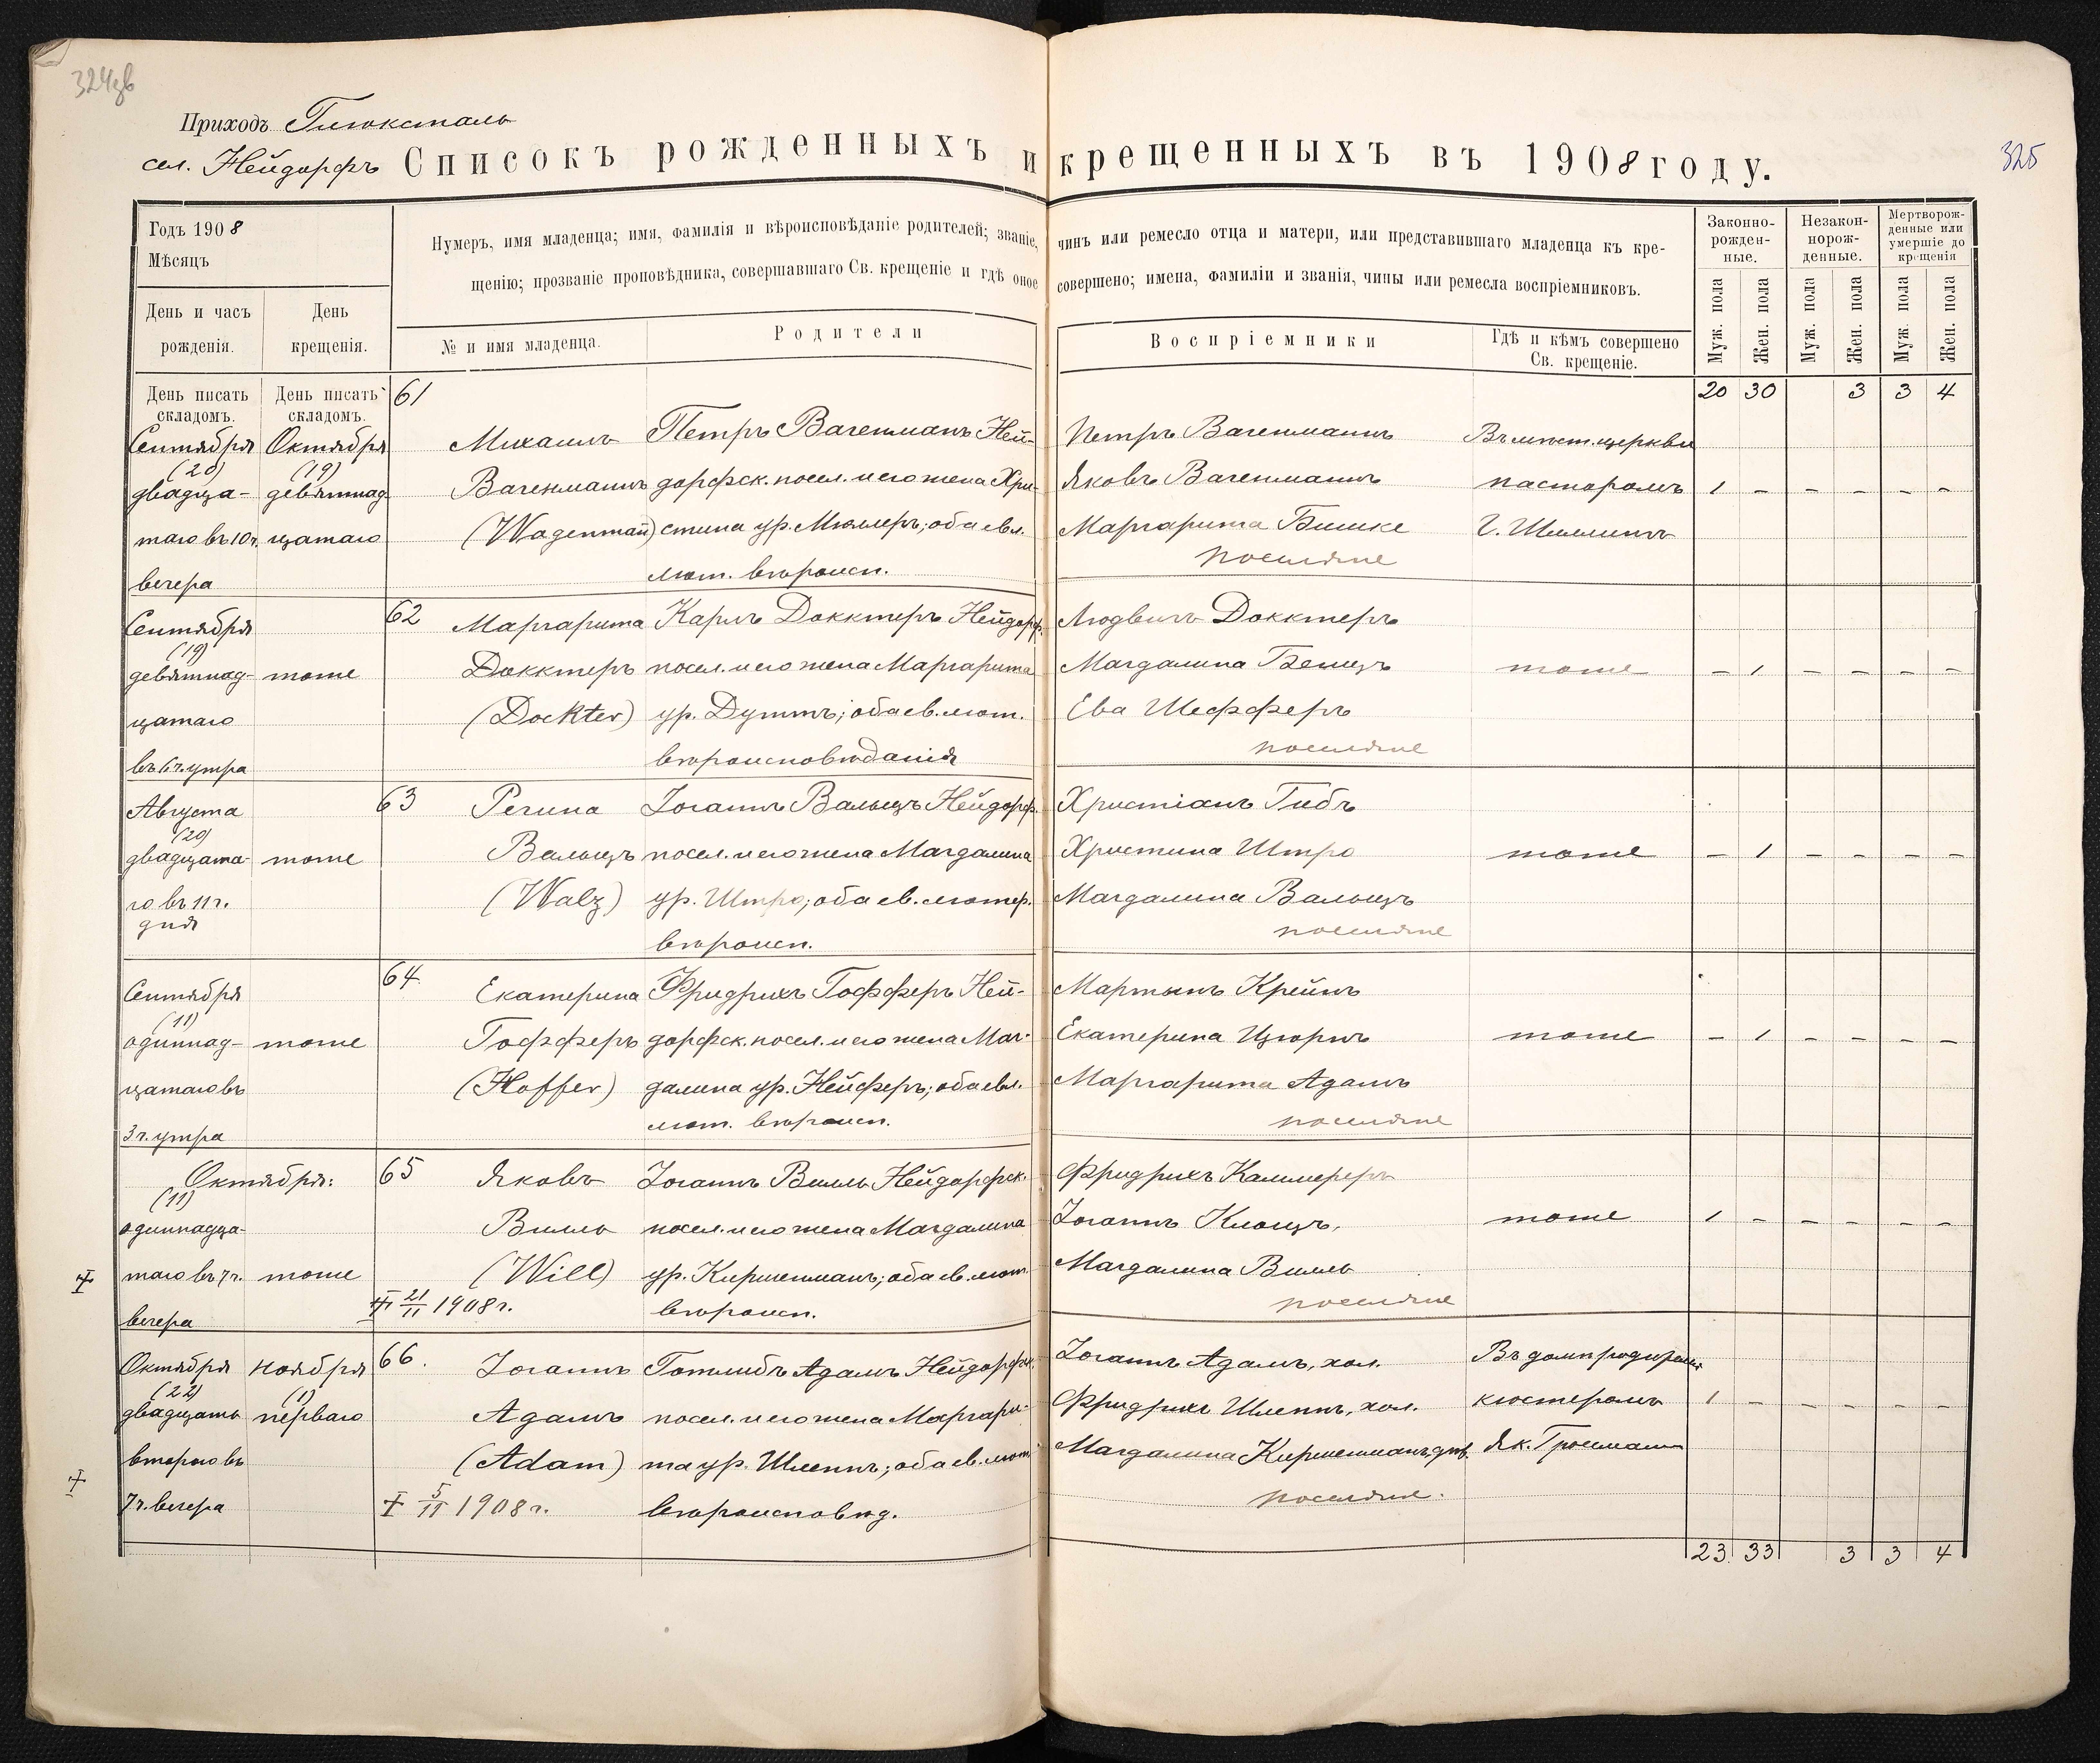 324зв
Приходъ Глюксталь
сел. Нейдорфъ Списокъ рожденныхъ и крещенныхъ въ 1908 году.
325
Годъ 1908
Мѣсяцъ
Нумеръ, имя младенца; имя, фамилія и вѣроисповѣданіе родителей; званіе, чинъ или ремесло отца и матери, или представившаго младенца къ кре-
щенію; прозваніе проповѣдника, совершавшаго Св. крещеніе и гдѣ оное совершено; имена, фамиліи и званія, чины или ремесла воспріемниковъ.
Законно-рожден-ные.
Незакон-норож-денные.
Мертворож-денные или умершіе до крещенія
День и часъ рожденія.
День крещенія.
№ и имя младенца.
Родители
Воспріемники
Гдѣ и кѣмъ совершено Св. крещеніе.
Муж. пола
Жен. пола
Муж. пола
Жен. пола
Муж. пола
Жен. пола
День писать складомъ.
День писать складомъ.
20 30 3 3 4
61
Сентября Октября Михаилъ Петръ Вагенманъ Ней- Петръ Вагенманъ Въ мѣст. церкви
(20) (19)
двадца- девятнад Вагенманъ дорфск. посел. и его жена Хри- Яковъ Вагенманъ пасторомъ 1 – – – – –
таго въ 10 ч. цатаго (Wagenman̄) стина ур. Мюллеръ; оба евл. Маргарита Бишке Г. Шиллингъ
вечера лют. вѣроисп. поселяне
62
Сентября Маргарита Карлъ Доктеръ Нейдорф. Людвигъ Доктеръ
(19)
девятнад- тоже Доктеръ посел. и его жена Маргарита Магдалина Бенцъ тоже – 1 – – – –
цатаго (Dockter) ур. Дуттъ; оба ев. лют. Ева Шефферъ
въ 6 ч. утра вѣроисповѣданія поселяне
63
Августа Регина Іоганнъ Вальцъ Нейдорф. Христіанъ Гибъ
(20)
двадцата- тоже Вальцъ посел. и его жена Магдалина Христина Штро тоже – 1 – – – –
го въ 11 ч. (Walz) ур. Штро; оба ев. лютер. Магдалина Вальцъ
дня вѣроисп. поселяне
64.
Сентября Екатерина Фридрихъ Гофферъ Ней- Мартынъ Крейнъ
(11)
одиннад- тоже Гофферъ дорфск. посел. и его жена Маг- Екатерина Цюрнъ тоже – 1 – – – –
цатаго въ (Hoffer) далина ур. Нейферъ; оба евл. Маргарита Адамъ
3 ч. утра лют. вѣроисп. поселяне
65
Октября: Яковъ Іоганнъ Вилль Нейдорфск. Фридрихъ Каммереръ
(11)
одиннадца- Вилль посел. и его жена Магдалина Іоганнъ Клоцъ, тоже 1 – – – – –
таго въ 7 ч. тоже (Will) ур. Киршенманъ; оба ев. лют. Магдалина Вилль
вечера 21/11 1908 г. вѣроисп. поселяне
66.
Октября Ноября Іоганнъ Готлибъ Адамъ Нейдорфск. Іоганнъ Адамъ, хол. Въ домѣ родителей
(22) (1)
двадцать перваго Адамъ посел. и его жена Маргари- Фридрихъ Шлеппъ, хол. кюстеромъ 1 – – – – –
второго въ (Adam) та ур. Шлеппъ; оба ев. лют. Магдалина Киршенманъ, дѣв. Як. Гроссманъ
7 ч. вечера 5/11 1908 г. вѣроисповѣд. поселяне.
23 33 3 3 4